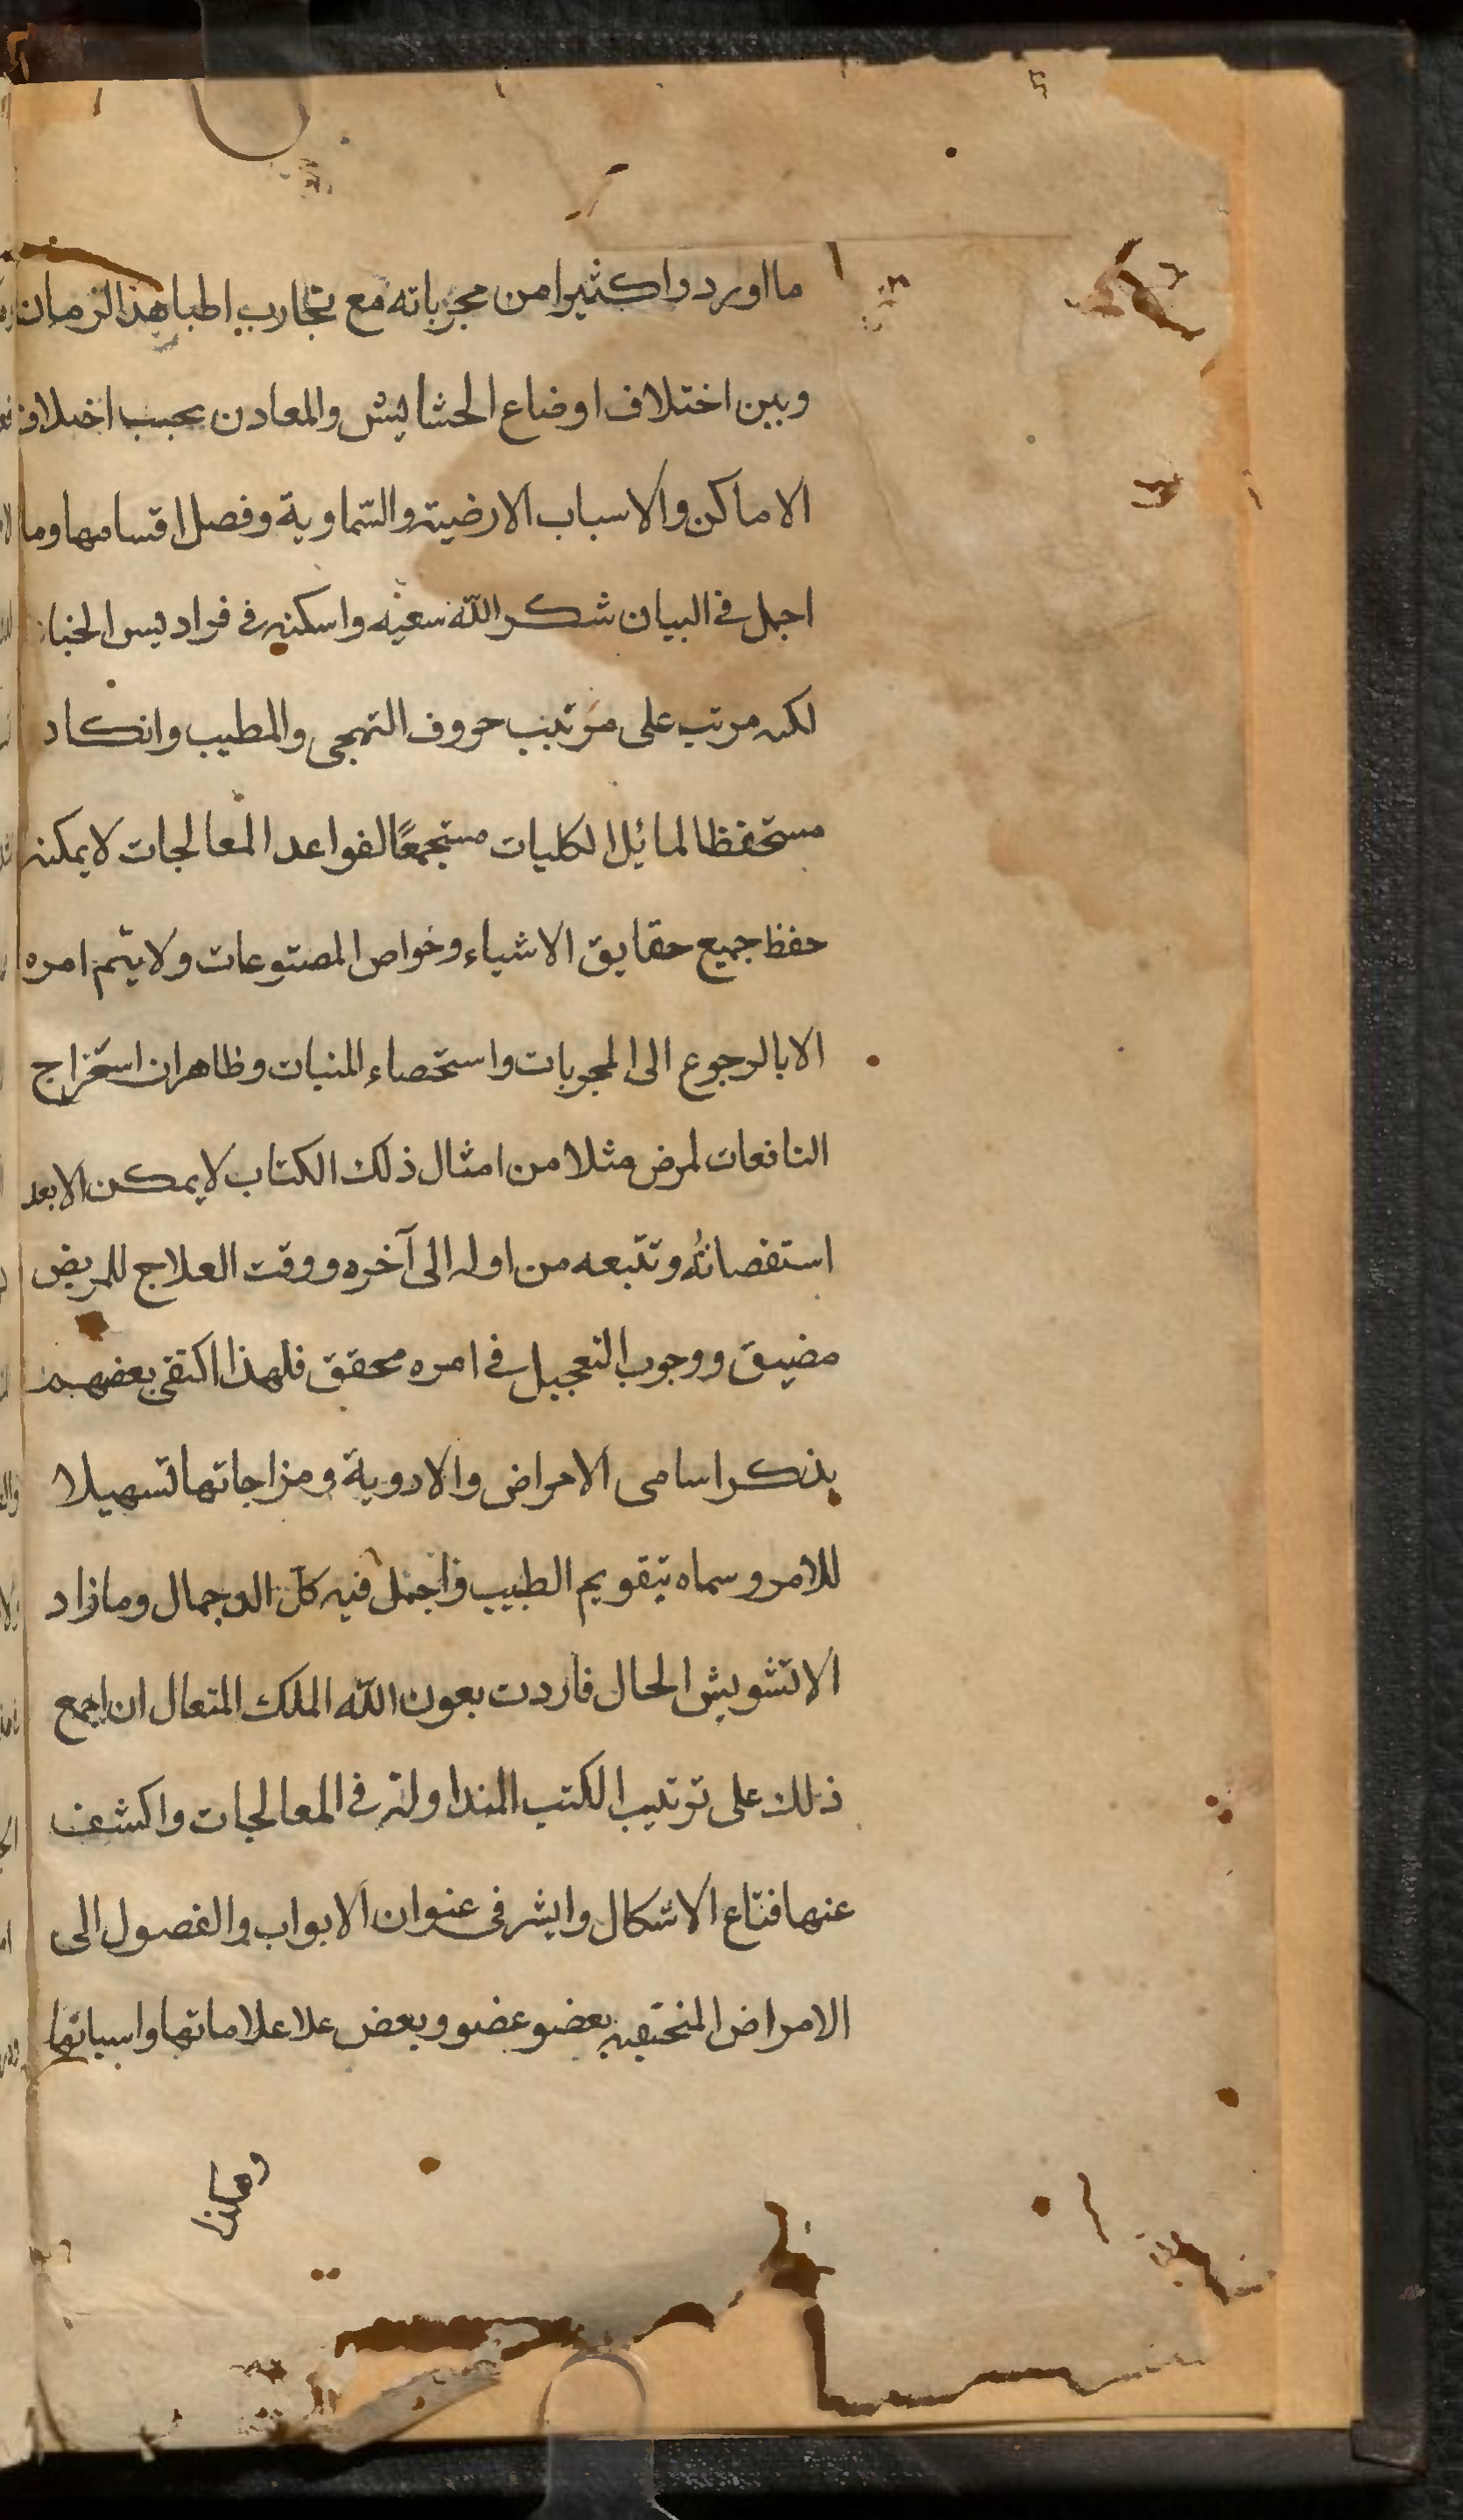 ما اورد واكثيرا من مجرباته مع تجارب اطبا هذا الزمان
وبين اختلاف اوضاع الحشايش والمعادن بحسب اختلاف
الاماكن والاسباب الارضية والسّماوية وفصل اقسامها وما
اجمل في البيان شكر اللّه سعيه واسكنه في فراديس الجنان
لكنه مرتب على مرتيب حروف التهجى والمطيب وانكاد
مستحفظا لمائل الكليات مستجمعًا لقواعد المعالجات لايمكنه
حفظ جميع حقايق الاشياء وخواص المصنوعات ولايتم امره
الابالرجوع الى المجربات واستحصاء المنبات وظاهران استخراج
النافعات لمرض مثلا من امثال ذلك الكتاب لايمكن الابعد
استقصائه وتتبعه من اوله الى آخره ووقت العلاج للمريض
مضيق ووجوب التعجيل في امره محقق فلهذا اكتفى بعضهم
بذكر اسامى الامراض والادوية ومزاجاتها تسهيلا
للامر وسماه تبقويم الطبيب فاجمل فيه كل الاجمال ومازاد
الاتشويش الحال فاردت بعون اللّه الملك المتعال ان اجمع
ذلك على ترتيب الكتب المتداولة في المعالجات واكشف
عنها قناع الاشكال وايشر فى عنوان الابواب والفصول الى
الامراض المختصة بعضو عضو وبعض علاعلاماتها واسبابها